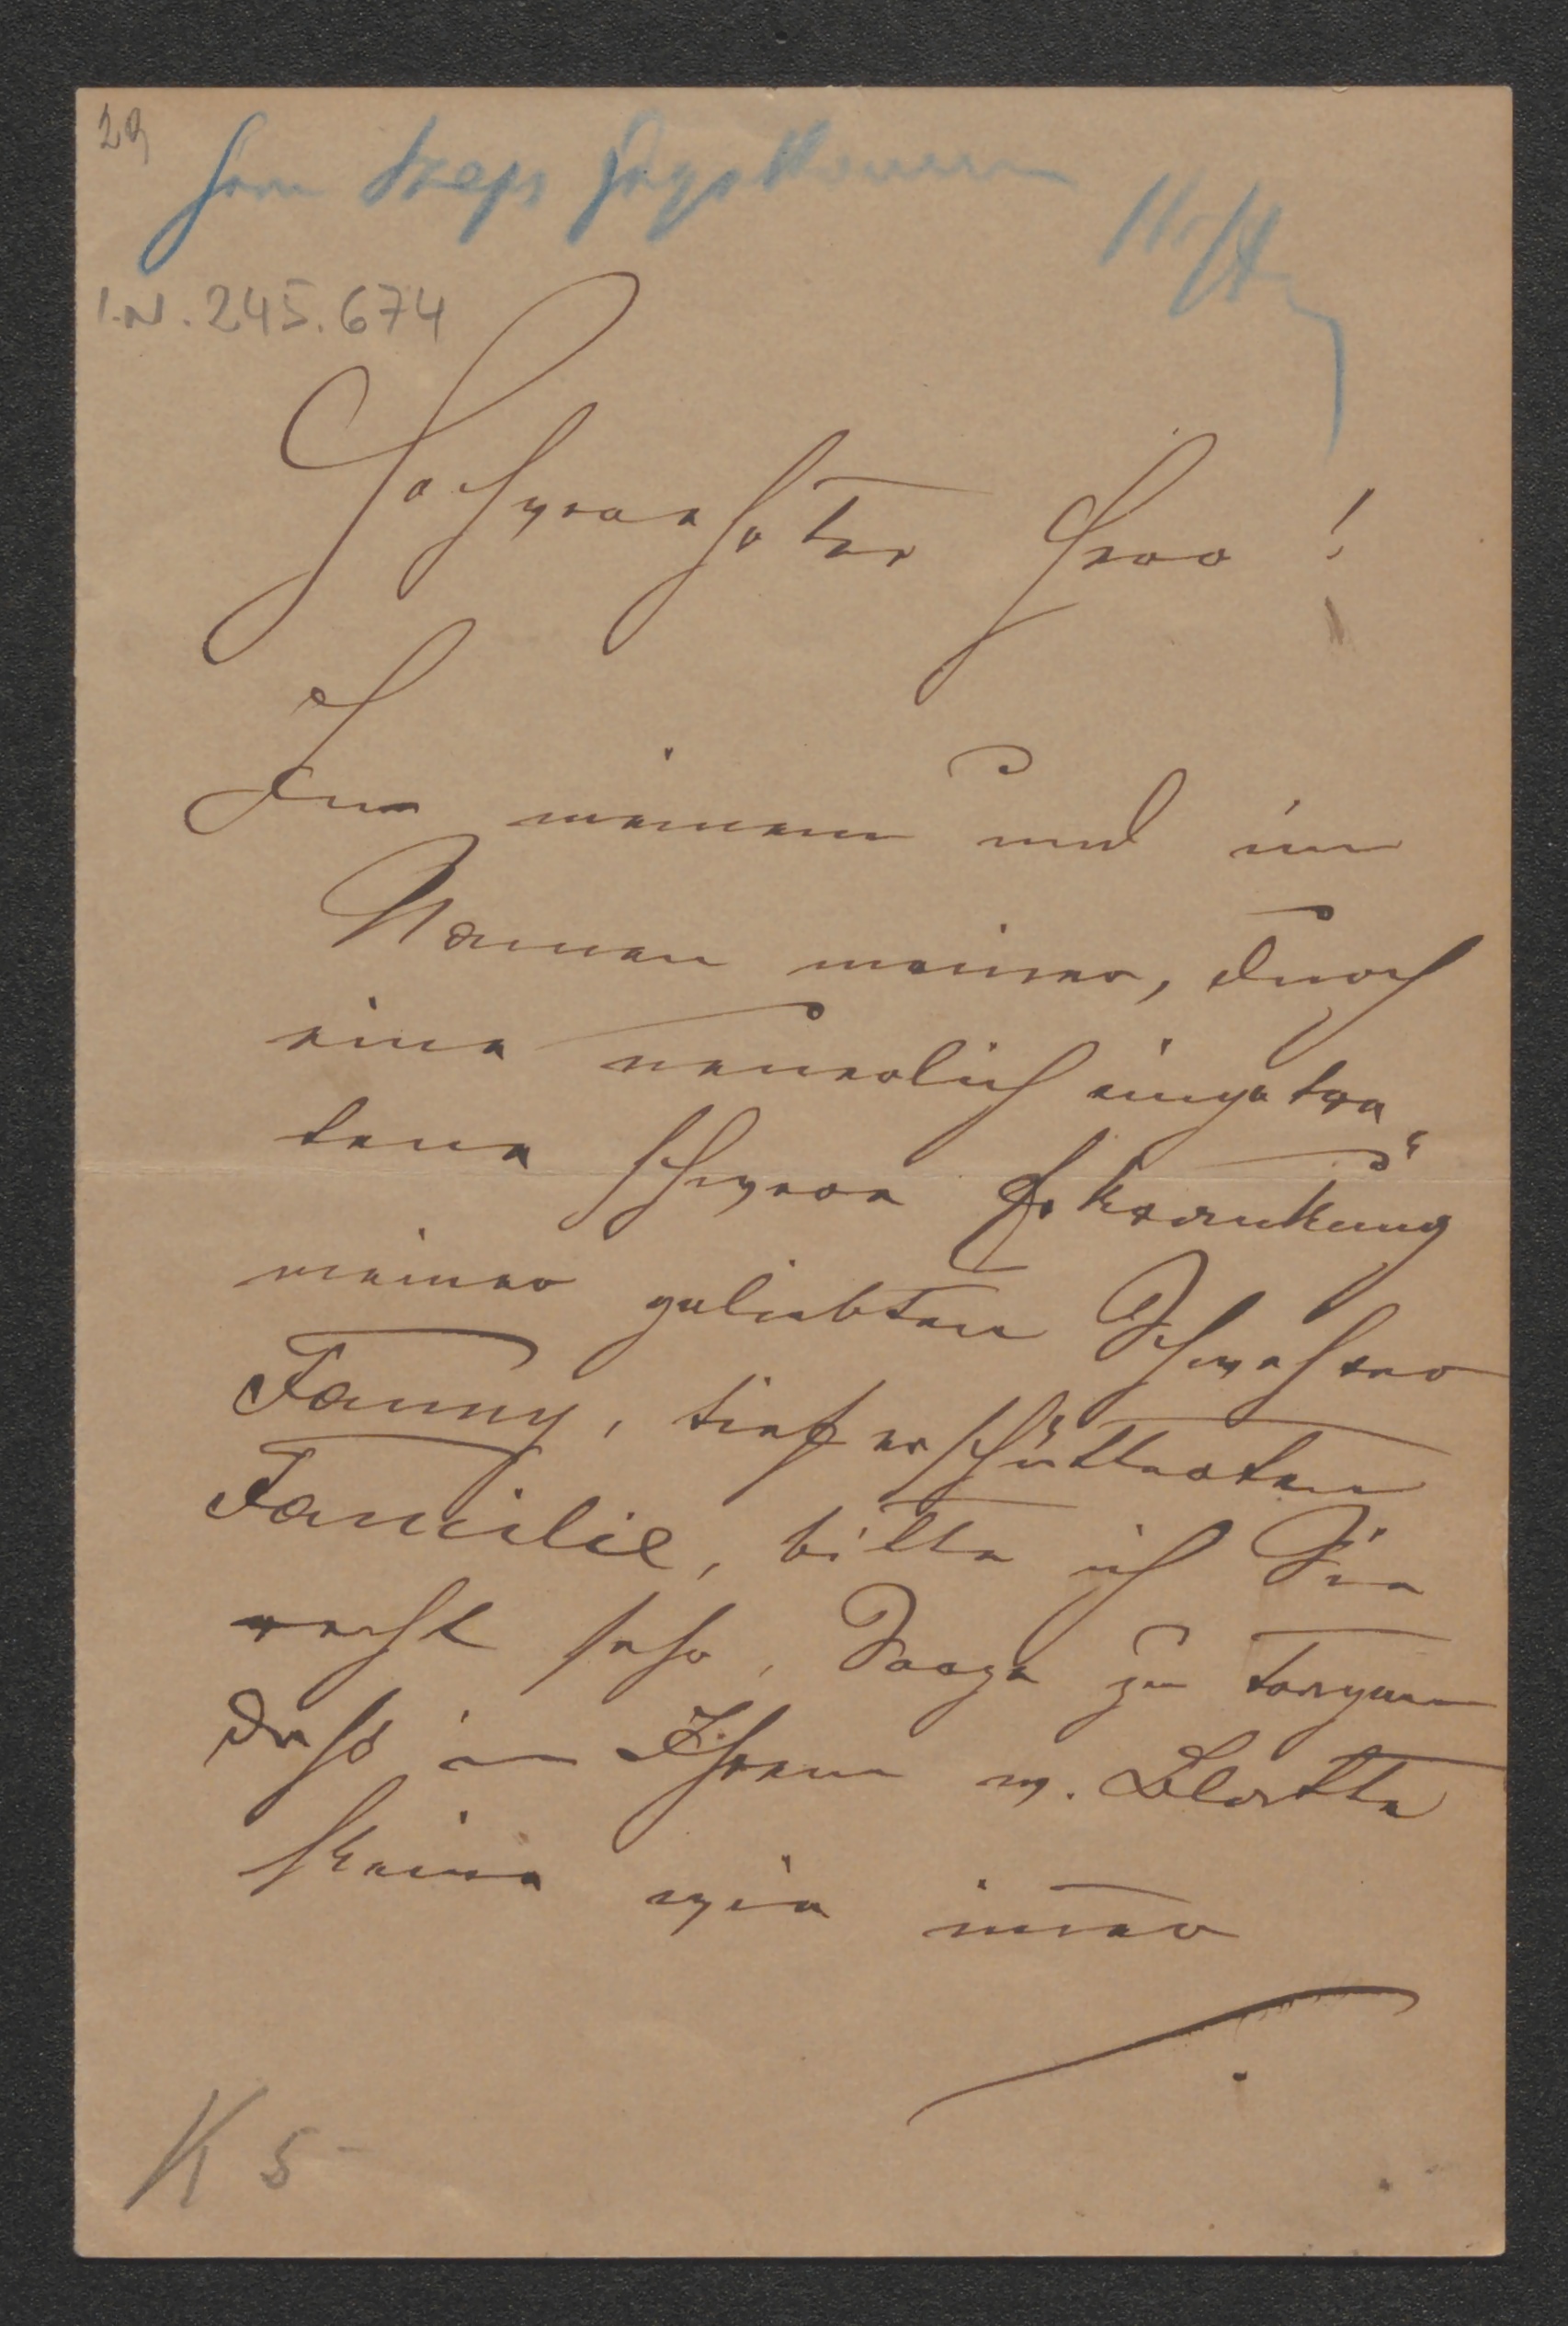 29
Herrn Szeps
I.N. 245.674
Hochverehrter Herr!
In meinem und im
Namen meiner, durch
eine neuerlich eingetre-
tene schwere Erkrankung
meiner geliebten Schwester
Fanny, tief erschütterten
Familie, bitte ich Sie
recht sehr, Sorge zu tragen
daß in Ihrem w. Blatte
keine wie immer
K 5